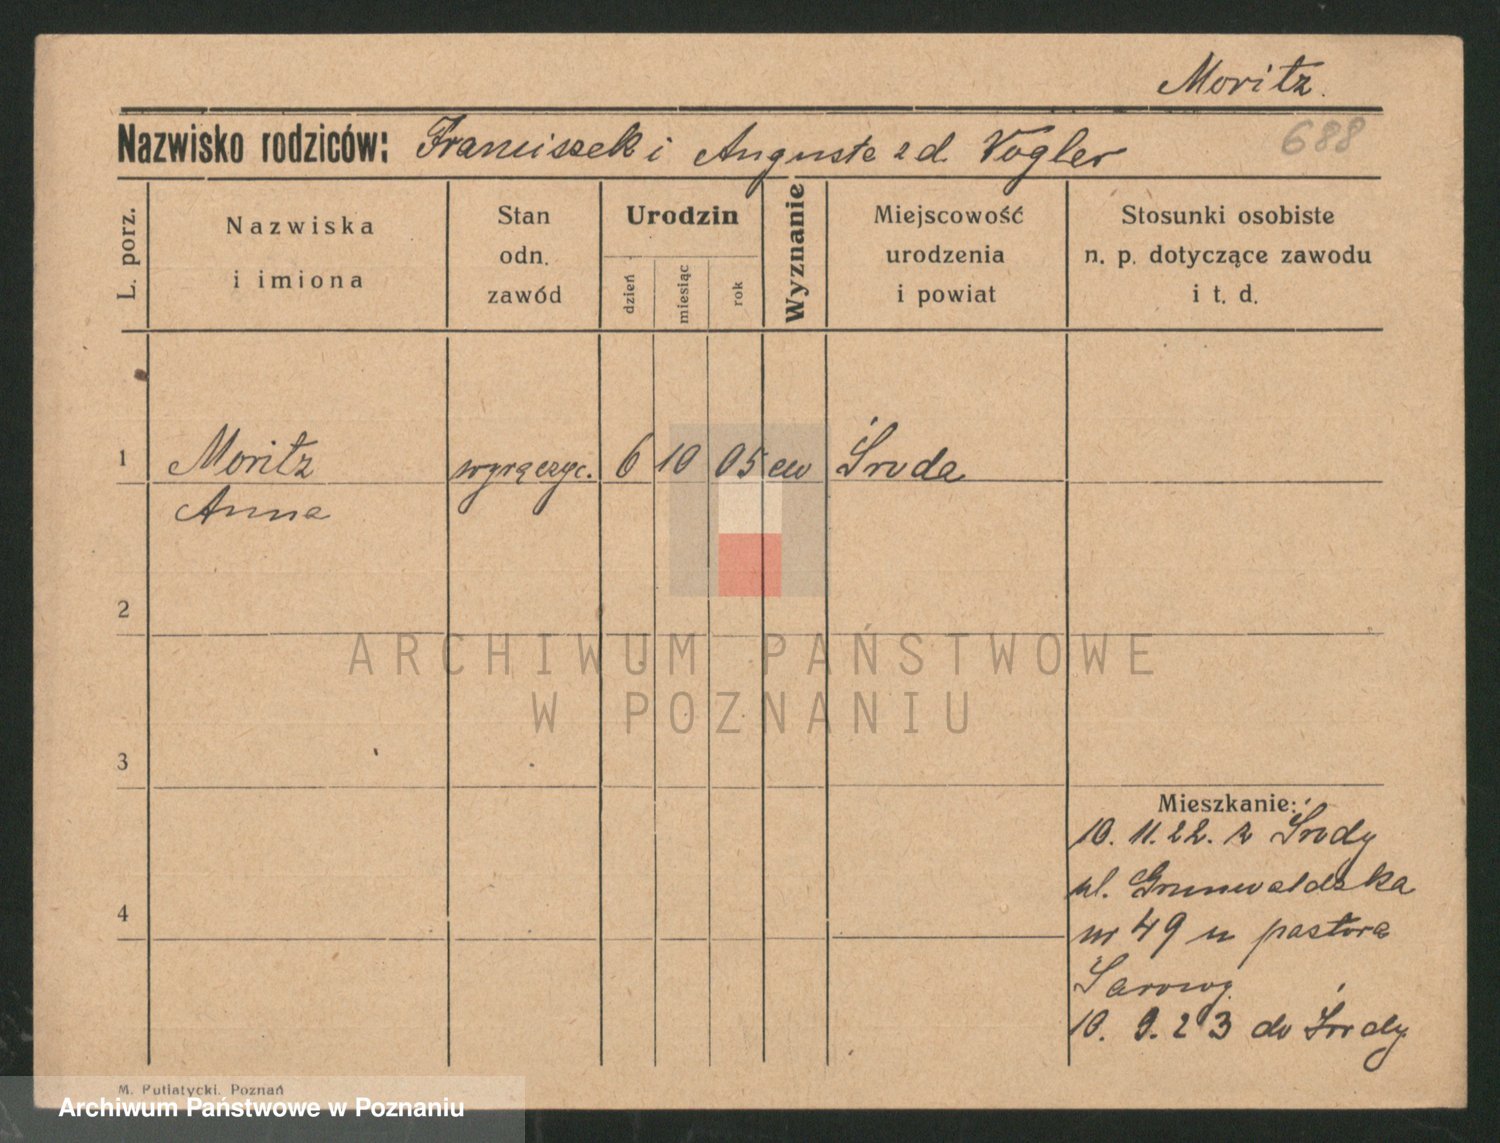 Moritz.
Nazwisko rodziców: Franciszek i Auguste z d. Vogler
688
L. porz.
Nazwiska
i imiona
Stan
odn.
zawód
Urodzin
dzień
miesiąc
rok
Wyznanie
Miejscowość
urodzenia
i powiat
Stosunki osobiste
n. p. dotyczące zawodu
i t. d.
1 Moritz wyręczyc. 6 10 05 ew Środa
Anna
2
ARCHIWUM PAŃSTWOWE
W POZNANIU
3
Mieszkanie:
10. 11. 22. z Środy
ul. Grunwaldzka
nr 49 u pastora
10. 9. 23 do Środy
4
M. Putiatycki, Poznań
Archiwum Państwowe w Poznaniu